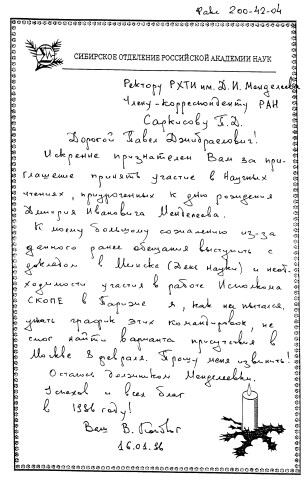 Факс 200-42-04
СИБИРСКОЕ ОТДЕЛЕНИЕ РОССИЙСКОЙ АКАДЕМИИ НАУК
Ректору РХТИ им. Д. И. Менделеева
Члену-корреспонденту РАН
Саркисову П. Д.
Дорогой Павел Джибраелович!
Искренне признателен Вам за при-
глашение принять участие в Научных
чтениях, приуроченных к дню рождения
Дмитрия Ивановича Менделеева.
К моему большому сожалению из-за
данного ранее обещания выступить с
докладом в Минске (День науки) и необ-
ходимости участия в работе Исполкома
СКОПЕ в Париже я, как ни пытался,
увязать график этих командировок, не
смог найти варианта присутствия в
Москве 8 февраля. Прошу меня извинить!
Остаюсь должником Менделеевки.
Успехов и всех благ
в 1996 году!
Ваш В.
16.01.96